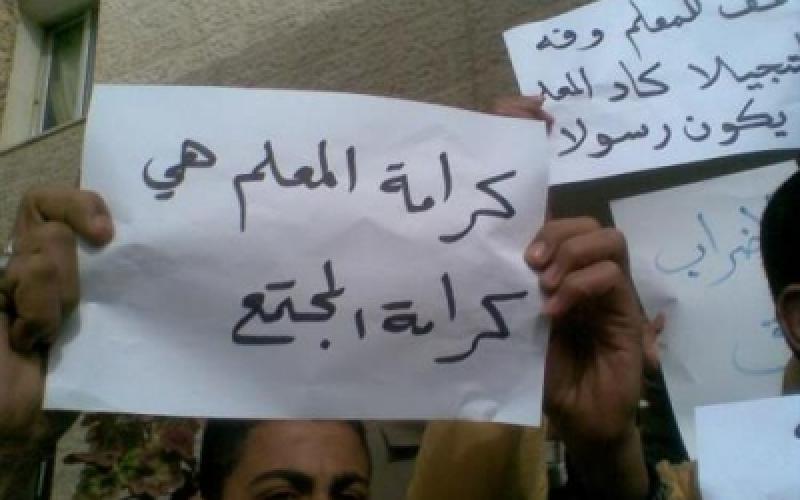 كرامة المعلم هي
كرامة المجتمع
للمعلم وفه
التبجيلا كاد المعلـ
يكون رسولا